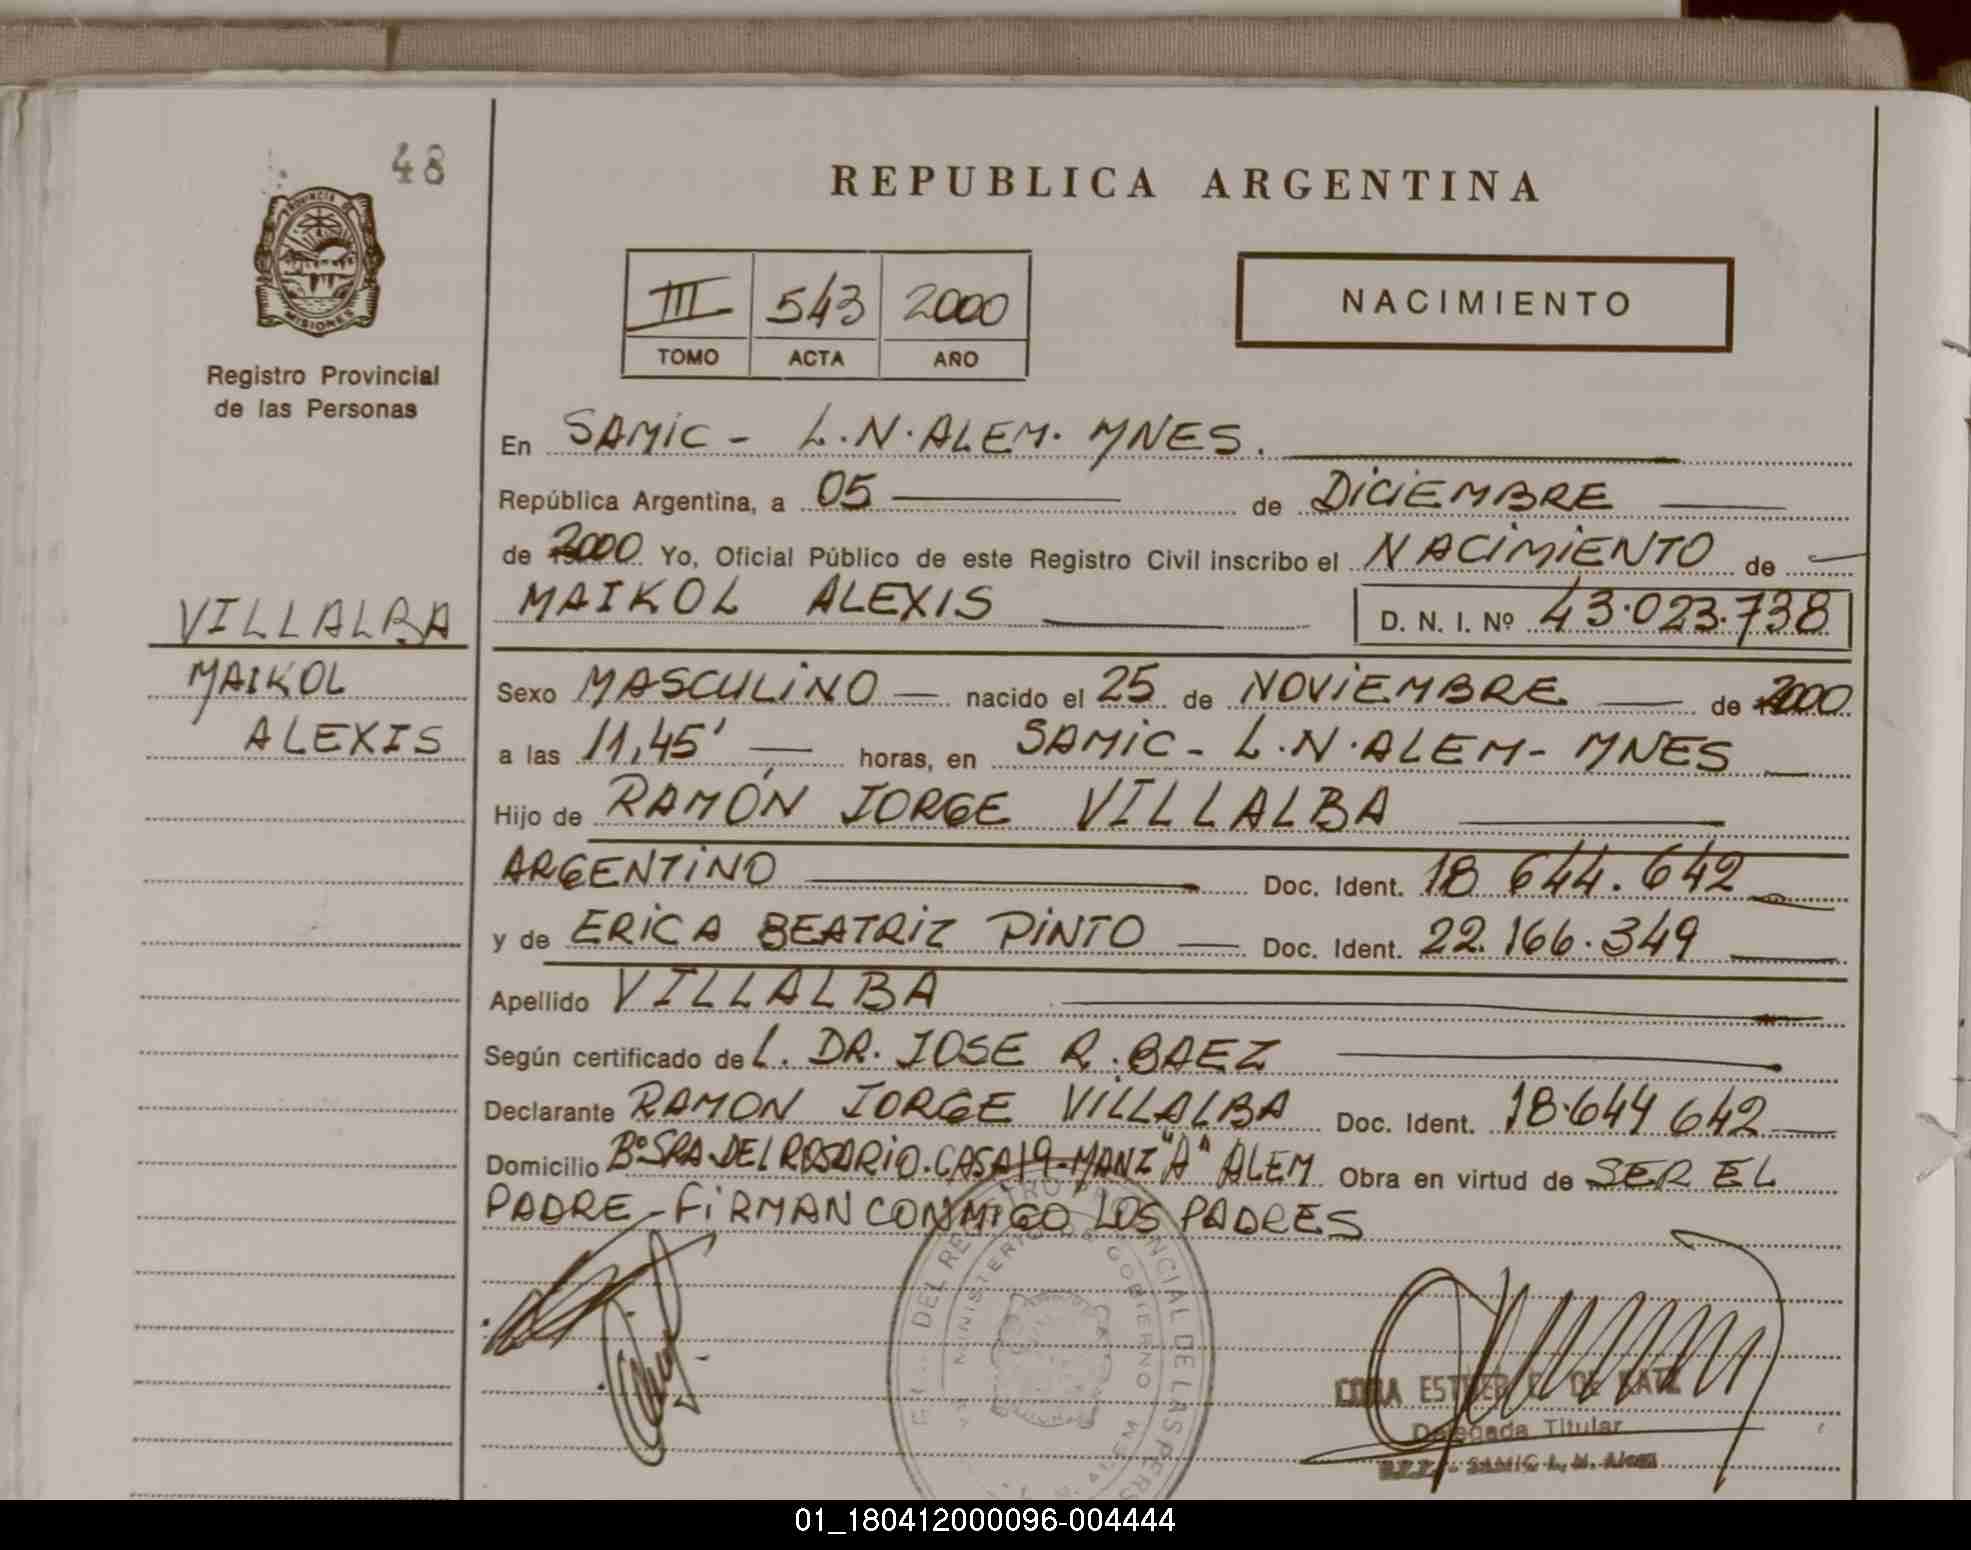 48
PROVINCIA DE
MISIONES
Registro Provincial
de las Personas
VILLALBA
MAIKOL
ALEXIS
REPUBLICA ARGENTINA
III 543 2000
TOMO ACTA AÑO
NACIMIENTO
En SAMIC - L.N. ALEM. MNES.
República Argentina, a 05 de DICIEMBRE
de 2000 Yo, Oficial Público de este Registro Civil inscribo el NACIMIENTO de
MAIKOL ALEXIS D. N. I. Nº 43.023.738
Sexo MASCULINO nacido el 25 de NOVIEMBRE de 2000
a las 11,45' horas, en SAMIC - L.N. ALEM - MNES
Hijo de RAMÓN JORGE VILLALBA
ARGENTINO Doc. Ident. 18 644.642
y de ERICA BEATRIZ PINTO Doc. Ident. 22.166.349
Apellido VILLALBA
Según certificado de L. DR. JOSE R. BAEZ
Declarante RAMON JORGE VILLALBA Doc. Ident. 18.644 642
Domicilio Bº SRA. DEL ROSARIO. CASA 19 - MANZ "A" ALEM Obra en virtud de SER EL
PADRE - FIRMAN CONMIGO LOS PADRES
DEL REGISTRO PROVINCIAL DE LAS PERS
MINISTERIO DE GOBIERNO
ESTHER DE KATZ
Delegada Titular
SAMIC L. N. Alem
01_180412000096-004444